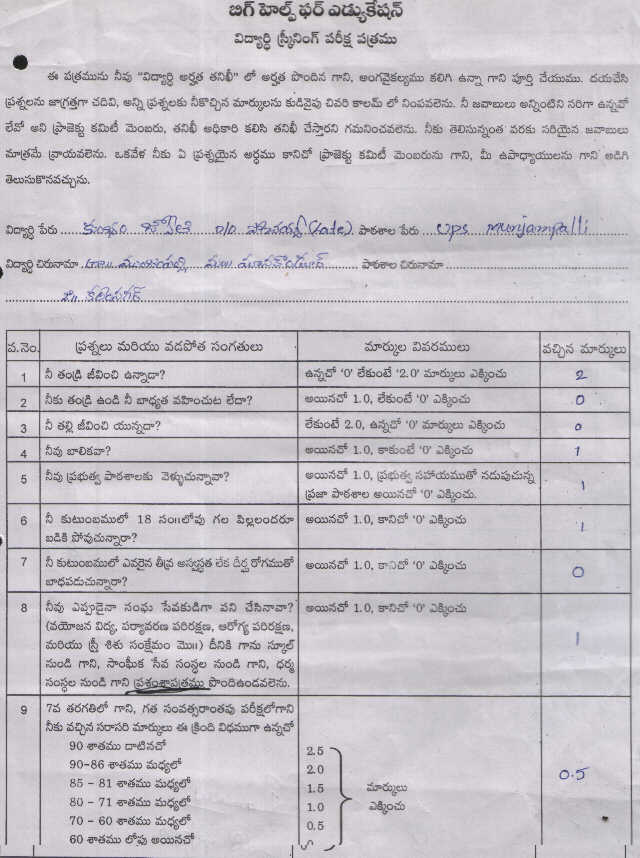 బిగ్ హెల్ప్ ఫర్ ఎడ్యుకేషన్
విద్యార్థి స్క్రీనింగ్ పరీక్ష పత్రము
ఈ పత్రమును నీవు "విద్యార్థి అర్హత తనిఖీ" లో అర్హత పొందిన గాని, అంగవైకల్యము కలిగి ఉన్నా గాని పూర్తి చేయుము. దయచేసి
ప్రశ్నలను జాగ్రత్తగా చదివి, అన్ని ప్రశ్నలకు నీకొచ్చిన మార్కులను కుడివైపు చివరి కాలమ్ లో నింపవలెను. నీ జవాబులు అన్నింటిని సరిగా ఉన్నవో
లేవో అని ప్రాజెక్టు కమిటీ మెంబరు, తనిఖీ అధికారి కలిసి తనిఖీ చేస్తారని గమనించవలెను. నీకు తెలిసున్నంత వరకు సరియైన జవాబులు
మాత్రమే వ్రాయవలెను. ఒకవేళ నీకు ఏ ప్రశ్నయైన అర్థము కానిచో ప్రాజెక్టు కమిటీ మెంబరును గాని, మీ ఉపాధ్యాయులను గాని అడిగి
తెలుసుకొనవచ్చును.
విద్యార్థి పేరు D/o (Late). పాఠశాల పేరు UPS Munjampalli
విద్యార్థి చిరునామా పాఠశాల చిరునామా
జి॥ కరీంనగర్
వ.నెం. ప్రశ్నలు మరియు వడపోత సంగతులు మార్కుల వివరములు వచ్చిన మార్కులు
1 నీ తండ్రి జీవించి ఉన్నాడా? ఉన్నచో '0' లేకుంటే '2.0' మార్కులు ఎక్కించు 2
2 నీకు తండ్రి ఉండి నీ బాధ్యత వహించుట లేదా? అయినచో 1.0, లేకుంటే '0' ఎక్కించు 0
3 నీ తల్లి జీవించి యున్నదా? లేకుంటే 2.0, ఉన్నచో '0' మార్కులు ఎక్కించు 0
4 నీవు బాలికవా? అయినచో 1.0, కాకుంటే '0' ఎక్కించు 1
5 నీవు ప్రభుత్వ పాఠశాలకు వెళ్ళుచున్నావా? అయినచో 1.0, ప్రభుత్వ సహాయముతో నడుపుచున్న
ప్రజా పాఠశాల అయినచో '0' ఎక్కించు. 1
6 నీ కుటుంబములో 18 సం॥లోపు గల పిల్లలందరూ అయినచో 1.0, కానిచో '0' ఎక్కించు 1
బడికి పోవుచున్నారా?
7 నీ కుటుంబములో ఎవరైన తీవ్ర అస్వస్థత లేక దీర్ఘ రోగముతో అయినచో 1.0, కానిచో '0' ఎక్కించు 0
బాధపడుచున్నారా?
8 నీవు ఎప్పుడైనా సంఘ సేవకుడిగా పని చేసినావా? అయినచో 1.0, కానిచో '0' ఎక్కించు 1
(వయోజన విద్య, పర్యావరణ పరిరక్షణ, ఆరోగ్య పరిరక్షణ,
మరియు స్త్రీ శిశు సంక్షేమం మొ॥) దీనికి గాను స్కూల్
నుండి గాని, సాంఘీక సేవ సంస్థల నుండి గాని, ధర్మ
సంస్థల నుండి గాని ప్రశంశాపత్రము పొందిఉండవలెను.
9 7వ తరగతిలో గాని, గత సంవత్సరాంతపు పరీక్షలోగాని
నీకు వచ్చిన సరాసరి మార్కులు ఈ క్రింది విధముగా ఉన్నచో
90 శాతము దాటినచో 2.5
90-86 శాతము మధ్యలో 2.0
85 - 81 శాతము మధ్యలో 1.5 మార్కులు 0.5
80 - 71 శాతము మధ్యలో 1.0 ఎక్కించు
70 - 60 శాతము మధ్యలో 0.5
60 శాతము లోపు అయినచో